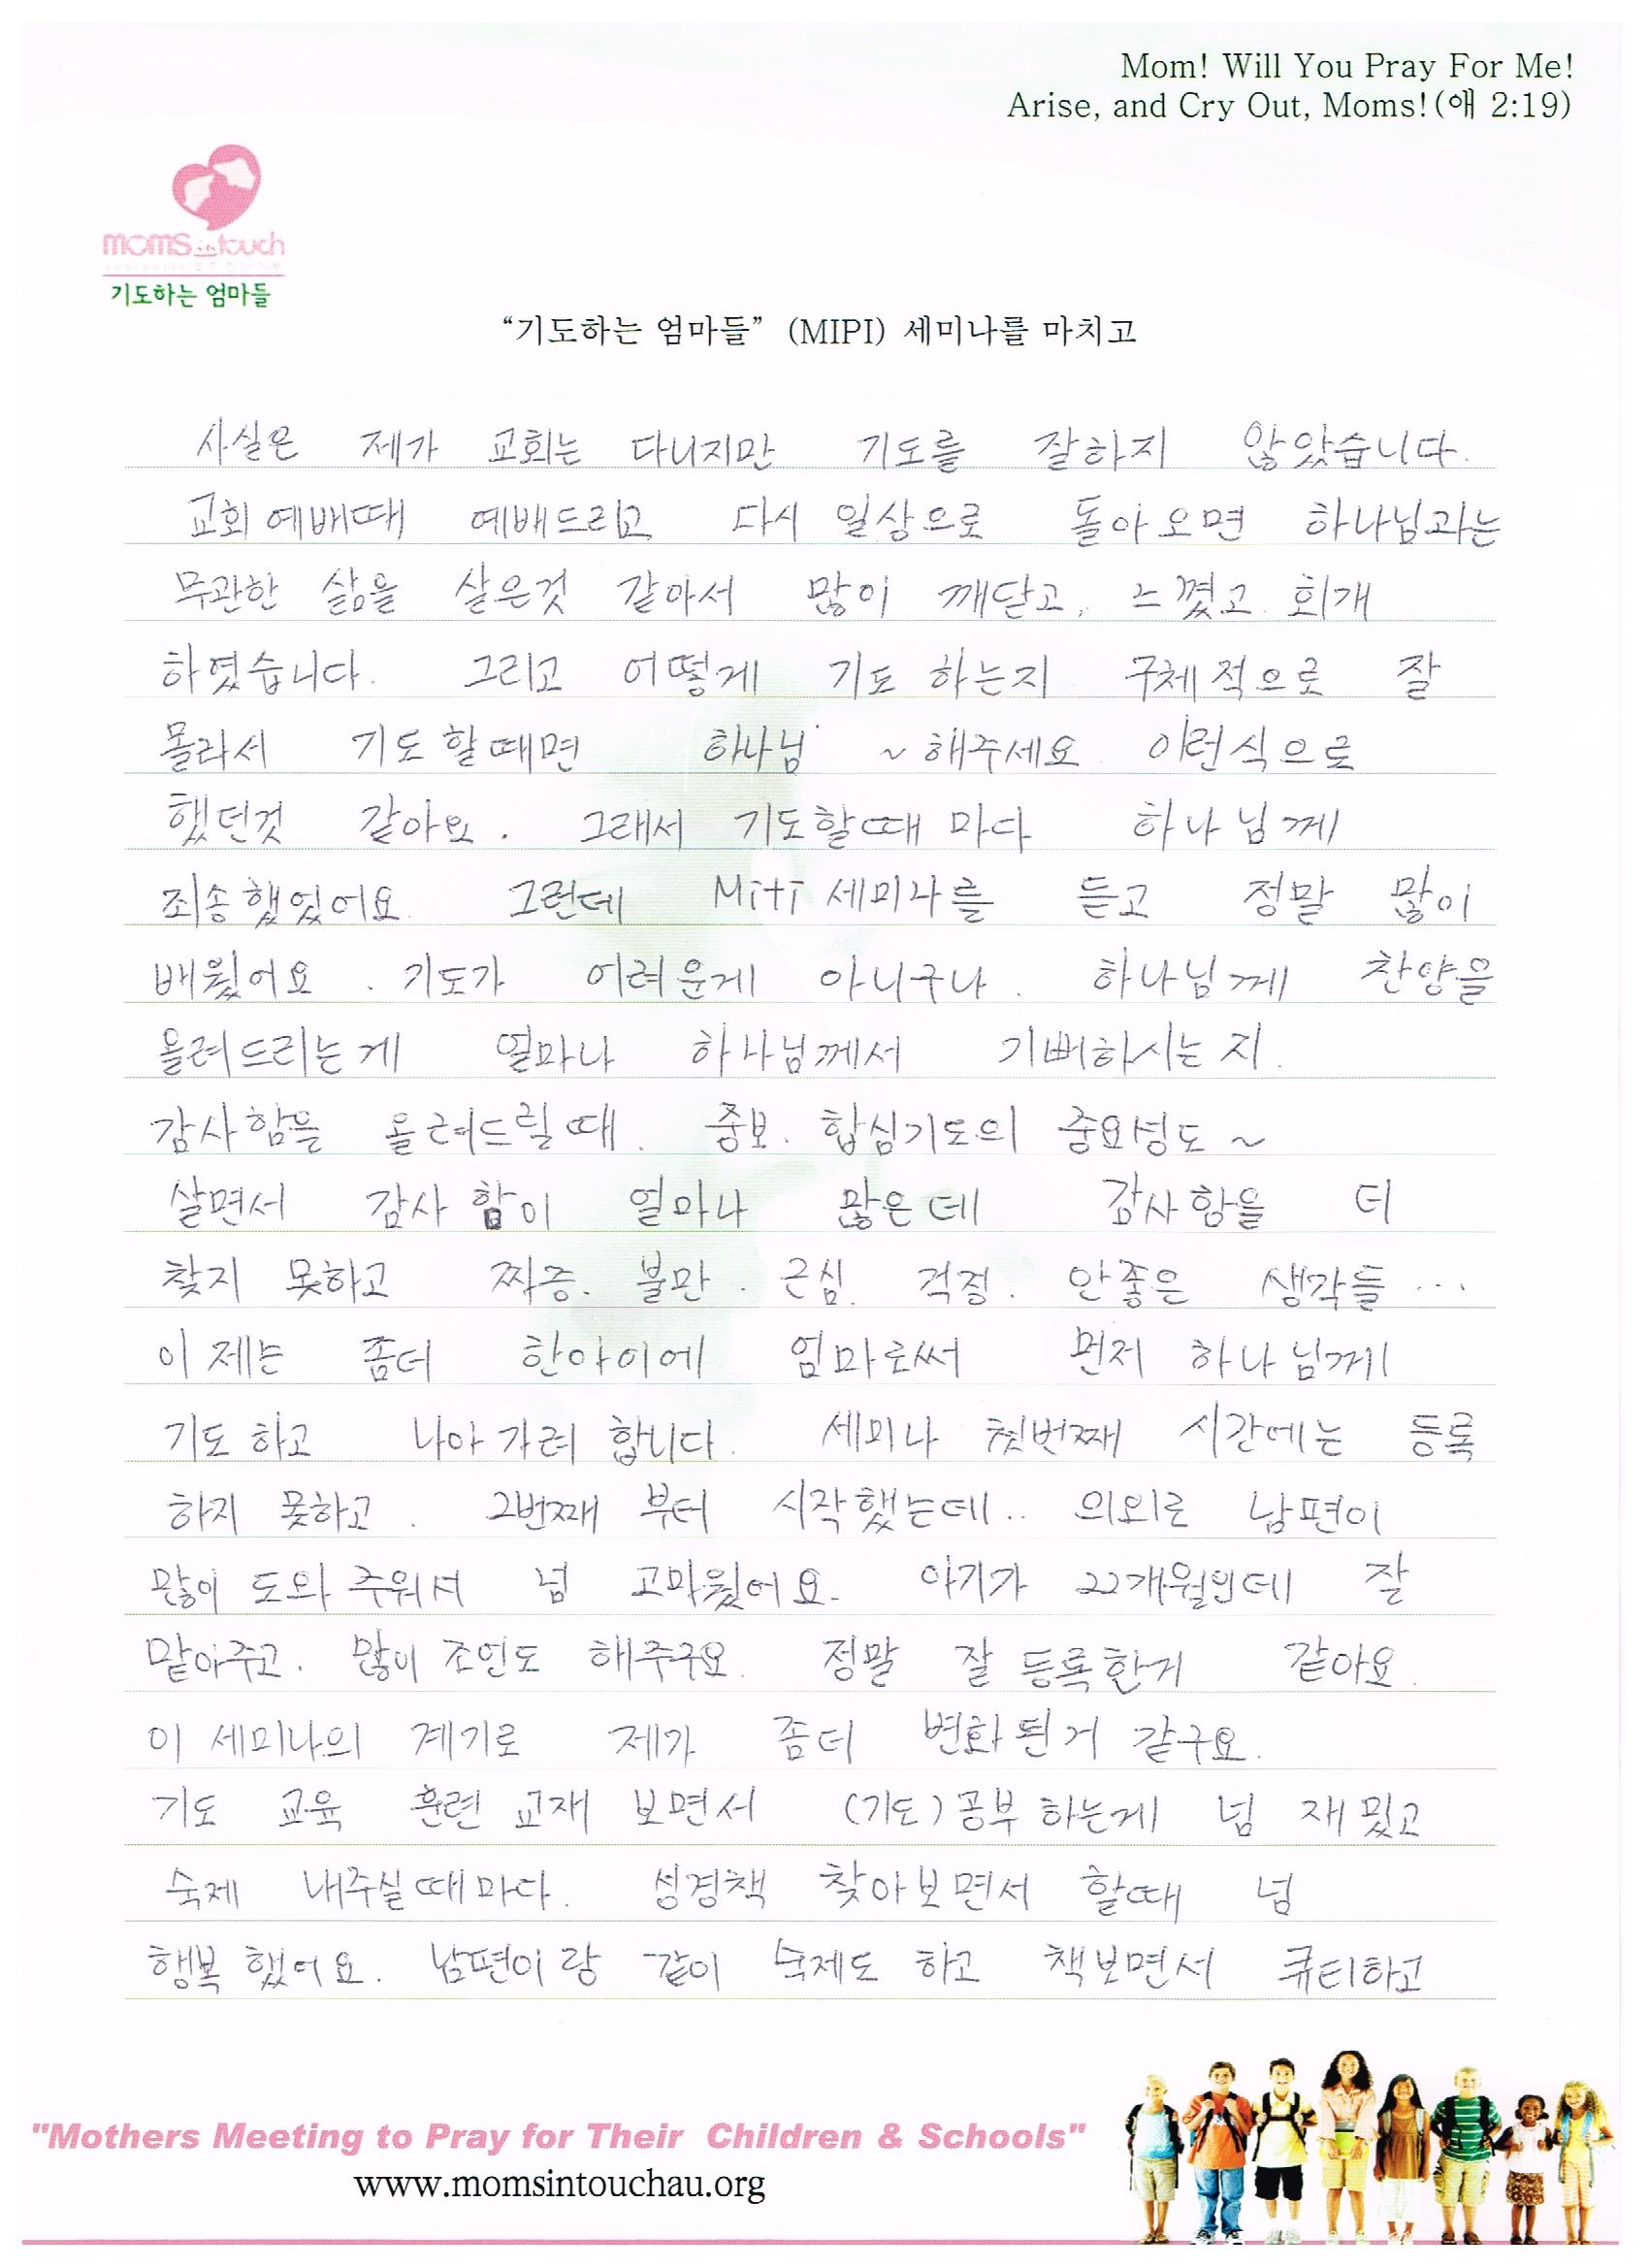 Mom! Will You Pray For Me!
Arise, and Cry Out, Moms!(애 2:19)
moms in touch
기도하는 엄마들
“기도하는 엄마들” (MIPI) 세미나를 마치고
사실은 제가 교회는 다니지만 기도를 잘하지 않았습니다.
교회 예배때 예배드리고 다시 일상으로 돌아오면 하나님과는
무관한 삶을 살은것 같아서 많이 깨닫고, 느꼈고 회개
하였습니다. 그리고 어떻게 기도 하는지 구체적으로 잘
몰라서 기도할때면 하나님 ~해주세요 이런식으로
했던것 같아요. 그래서 기도할때 마다 하나님께
죄송했었어요. 그런데 Miti 세미나를 듣고 정말 많이
배웠어요. 기도가 어려운게 아니구나. 하나님께 찬양을
올려드리는게 얼마나 하나님께서 기뻐하시는지.
감사함을 올려드릴때. 중보. 합심기도의 중요성도~
살면서 감사함이 얼마나 많은데 감사함을 더
찾지 못하고 짜증. 불만. 근심. 걱정. 안좋은 생각들...
이제는 좀더 한아이에 엄마로써 먼저 하나님께
기도하고 나아가려 합니다. 세미나 첫번째 시간에는 등록
하지 못하고. 2번째 부터 시작했는데.. 의외로 남편이
많이 도와 주워서 넘 고마웠어요. 아기가 22개월인데 잘
맡아주고. 많이 조언도 해주구요. 정말 잘 등록한거 같아요.
이 세미나의 계기로 제가 좀더 변화된거 같구요.
기도 교육 훈련 교재 보면서 (기도)공부 하는게 넘 재밌고
숙제 내주실때마다. 성경책 찾아보면서 할때 넘
행복했어요. 남편이랑 같이 숙제도 하고 책보면서 큐티하고
"Mothers Meeting to Pray for Their Children & Schools"
www.momsintouchau.org